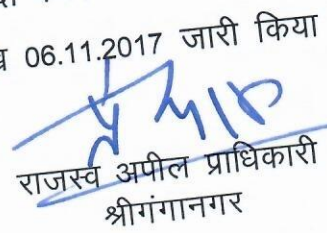 06.11.2017 जारी किया
राजस्व अपील प्राधिकारी
श्रीगंगानगर